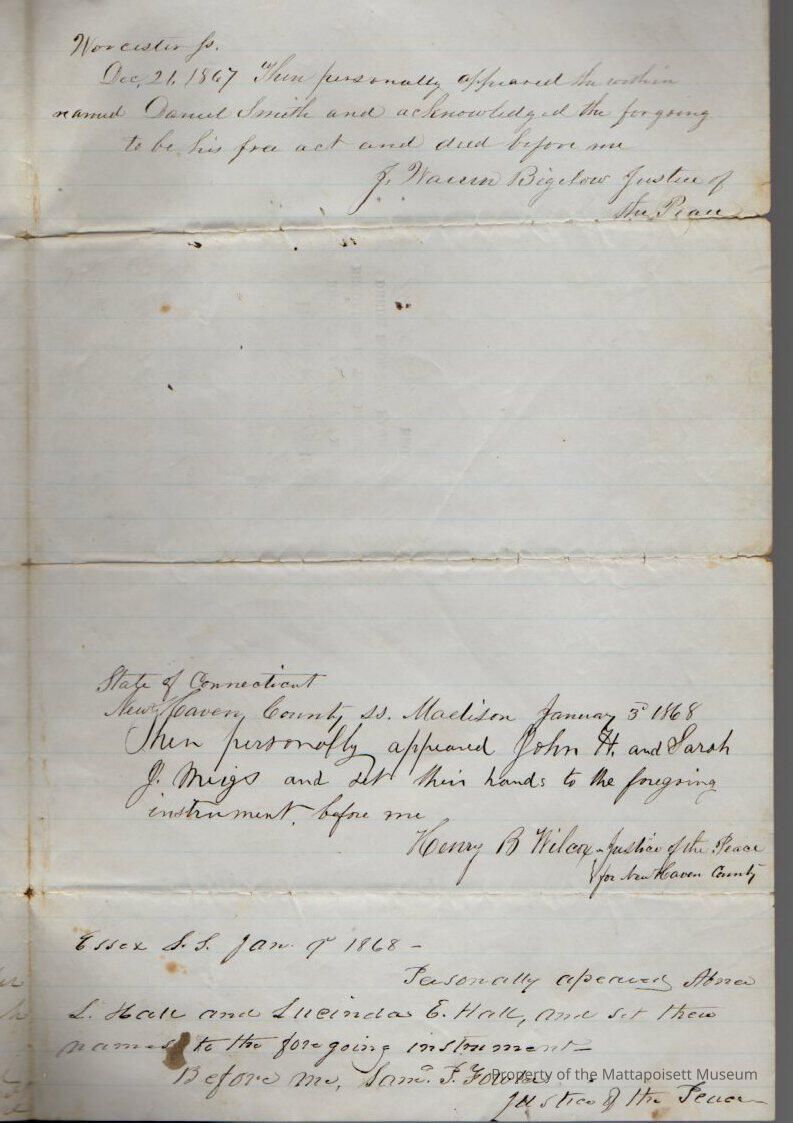 Worcester ss.
Dec. 21, 1867 Then personally appeared the within
named Daniel Smith and acknowledged the forgoing
to be his free act and deed before me
J. Warren Bigelow Justice of
the Peace
State of Connecticut
New Haven County ss. Madison January 3d 1868
Then personally appeared John H. and Sarah
J. Meigs and set their hands to the foregoing
instrument before me
Henry B Wilcox Justice of the Peace
for New Haven County
Essex S.S. Jan. 1868 -
Personally apeared Abner
L. Hall and Lucinda E. Hall, and set their
names to the foregoing instrument
Before me, Saml. P.
Justice of the Peace
Property of the Mattapoisett Museum